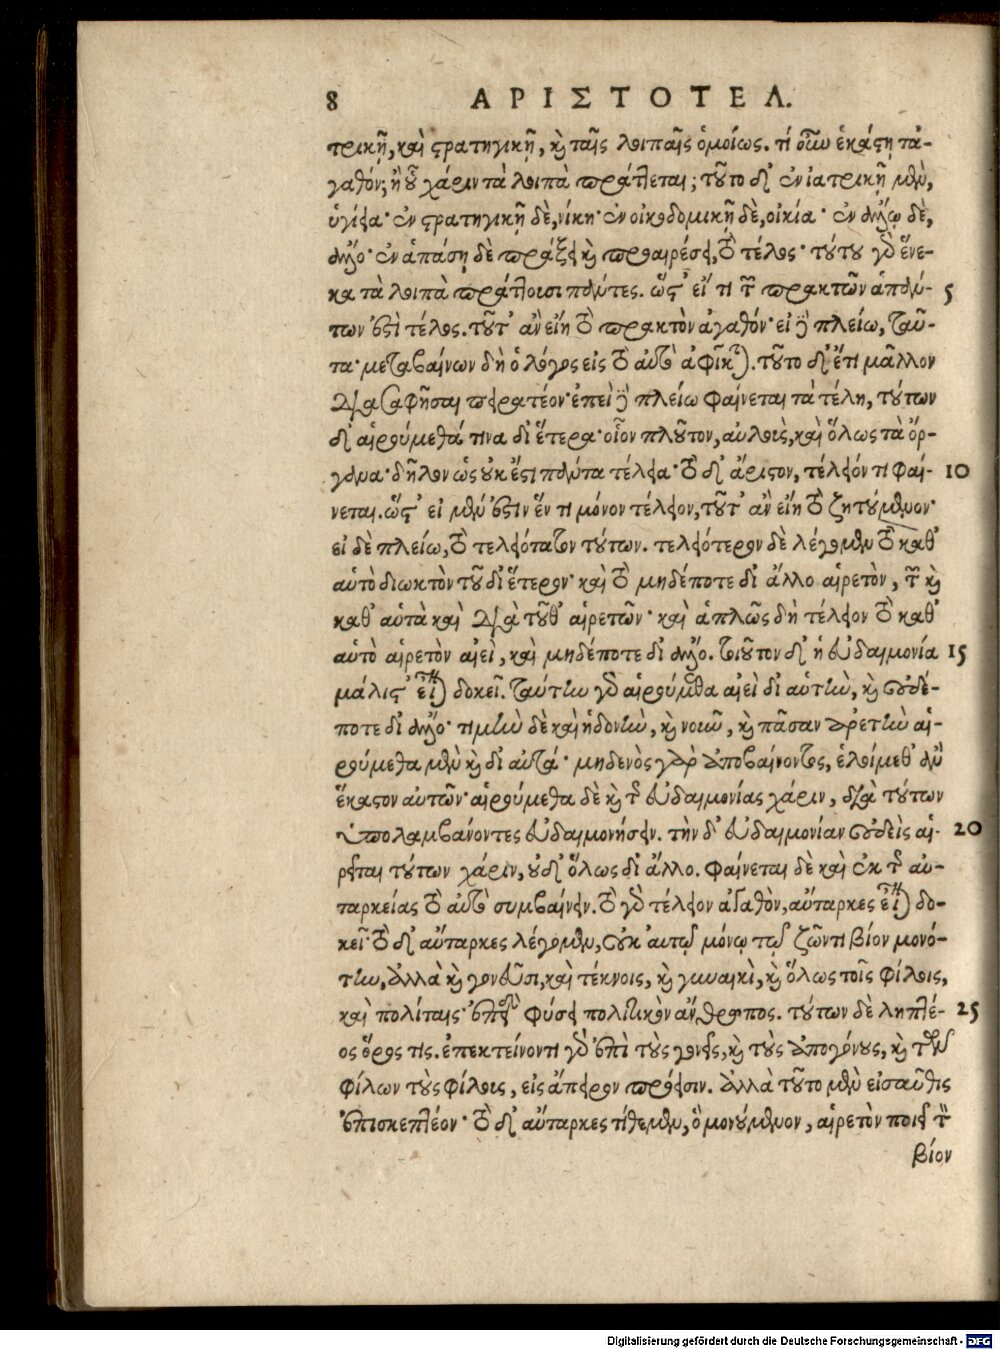 8 ΑΡΙΣΤΟΤΕΛ.
τρικῇ, καὶ στρατηγικῇ, καὶ ταῖς λοιπαῖς ὁμοίως. τί οὖν ἑκάστῃ τἀ-
γαθόν; ἢ οὗ χάριν τὰ λοιπὰ πράττεται; τοῦτο δ' ἐν ἰατρικῇ μὲν,
ὑγίεια· ἐν στρατηγικῇ δὲ, νίκη· ἐν οἰκοδομικῇ δὲ, οἰκία· ἐν ἄλλῳ δὲ,
ἄλλο· ἐν ἁπάσῃ δὲ πράξει καὶ προαιρέσει, τὸ τέλος· τούτου γὰρ ἕνε-
κα τὰ λοιπὰ πράττουσι πάντες. ὥστ' εἴ τι τῶν πρακτῶν ἁπάν- 5
των ἐστὶ τέλος. τοῦτ' ἂν εἴη τὸ πρακτὸν ἀγαθόν· εἰ δὲ πλείω, ταῦ-
τα· μεταβαίνων δὴ ὁ λόγος εἰς τὸ αὐτὸ ἀφῖκται. τοῦτο δ' ἔτι μᾶλλον
διασαφῆσαι πειρατέον· ἐπεὶ δὲ πλείω φαίνεται τὰ τέλη, τούτων
δ' αἱρούμεθά τινα δι' ἕτερα· οἷον πλοῦτον, αὐλοὺς, καὶ ὅλως τὰ ὄρ-
γανα· δῆλον ὡς οὐκ ἔστι πάντα τέλεια· τὸ δ' ἄριστον, τέλειόν τι φαί- 10
νεται. ὥστ' εἰ μέν ἐστιν ἕν τι μόνον τέλειον, τοῦτ' ἂν εἴη τὸ ζητούμενον·
εἰ δὲ πλείω, τὸ τελειότατον τούτων. τελειότερον δὲ λέγομεν τὸ καθ'
αὑτὸ διωκτὸν τοῦ δι' ἕτερον· καὶ τὸ μηδέποτε δι' ἄλλο αἱρετὸν, τῶν καὶ
καθ' αὑτὰ καὶ διὰ τοῦθ' αἱρετῶν· καὶ ἁπλῶς δὴ τέλειον τὸ καθ'
αὑτὸ αἱρετὸν αἰεὶ, καὶ μηδέποτε δι' ἄλλο. τοιοῦτον δ' ἡ εὐδαιμονία 15
μάλιστ' εἶναι δοκεῖ. ταύτην γὰρ αἱρούμεθα αἰεὶ δι' αὑτὴν, καὶ οὐδέ-
ποτε δι' ἄλλο· τιμὴν δὲ καὶ ἡδονὴν, καὶ νοῦν, καὶ πᾶσαν ἀρετὴν αἱ-
ρούμεθα μὲν καὶ δι' αὐτά· μηδενὸς γὰρ ἀποβαίνοντος, ἑλοίμεθ' ἂν
ἕκαστον αὐτῶν· αἱρούμεθα δὲ καὶ τῆς εὐδαιμονίας χάριν, διὰ τούτων
ὑπολαμβάνοντες εὐδαιμονήσειν. τὴν δ' εὐδαιμονίαν οὐδεὶς αἱ- 20
ρεῖται τούτων χάριν, οὐδ' ὅλως δι' ἄλλο. φαίνεται δὲ καὶ ἐκ τῆς αὐ-
ταρκείας τὸ αὐτὸ συμβαίνειν. τὸ γὰρ τέλειον ἀγαθὸν, αὔταρκες εἶναι δο-
κεῖ· τὸ δ' αὔταρκες λέγομεν, οὐκ αὐτῷ μόνῳ τῷ ζῶντι βίον μονό-
την, ἀλλὰ καὶ γονεῦσι, καὶ τέκνοις, καὶ γυναικὶ, καὶ ὅλως τοῖς φίλοις,
καὶ πολίταις· ἐπειδὴ φύσει πολιτικὸν ἄνθρωπος. τούτων δὲ ληπτέ- 25
ος ὅρος τις. ἐπεκτείνοντι γὰρ ἐπὶ τοὺς γονεῖς, καὶ τοὺς ἀπογόνους, καὶ τῶν
φίλων τοὺς φίλους, εἰς ἄπειρον πρόεισιν. ἀλλὰ τοῦτο μὲν εἰσαῦθις
ἐπισκεπτέον· τὸ δ' αὔταρκες τίθεμεν, ὃ μονούμενον, αἱρετὸν ποιεῖ τὸν
βίον
Digitalisierung gefördert durch die Deutsche Forschungsgemeinschaft - DFG